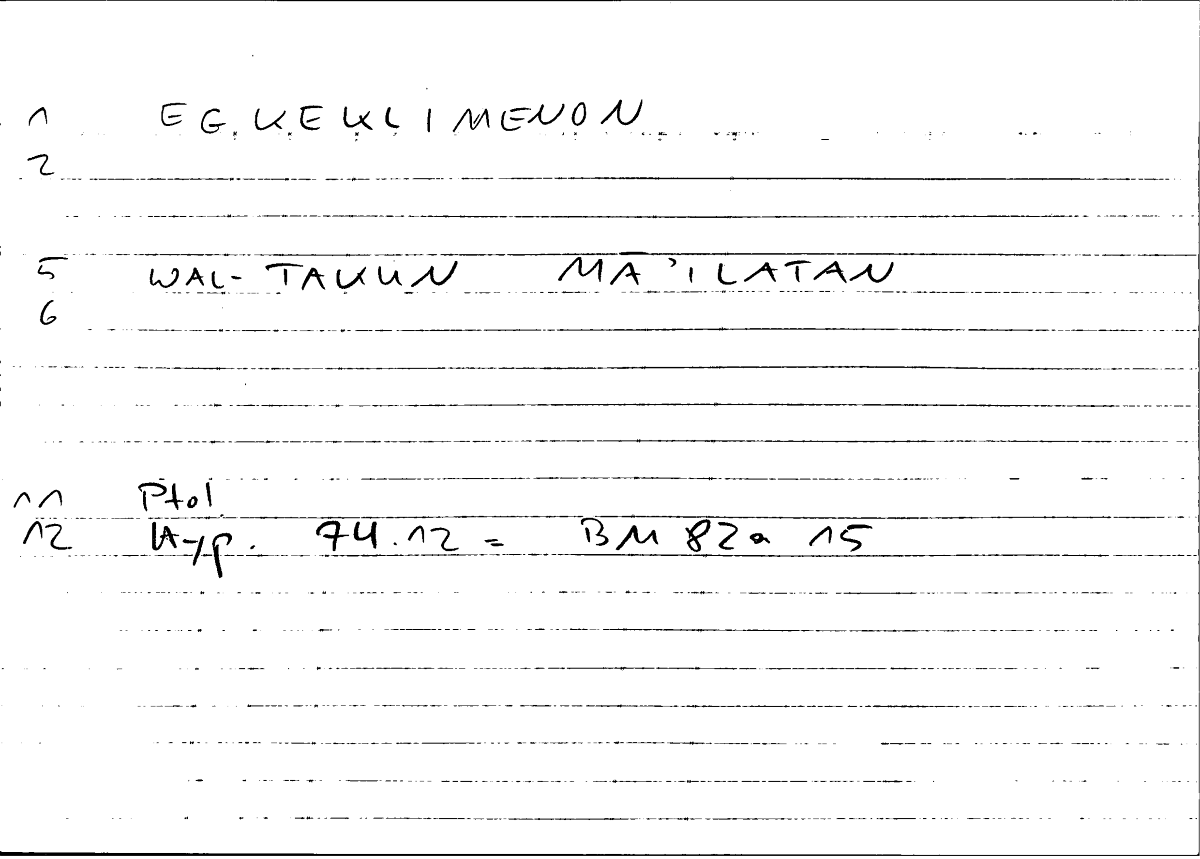 1 EGKEKLIMENON
2
5 WAL-TAKUN MĀ'ILATAN
6
11 Ptol
12 Hyp. 74.12 = BM 82a 15